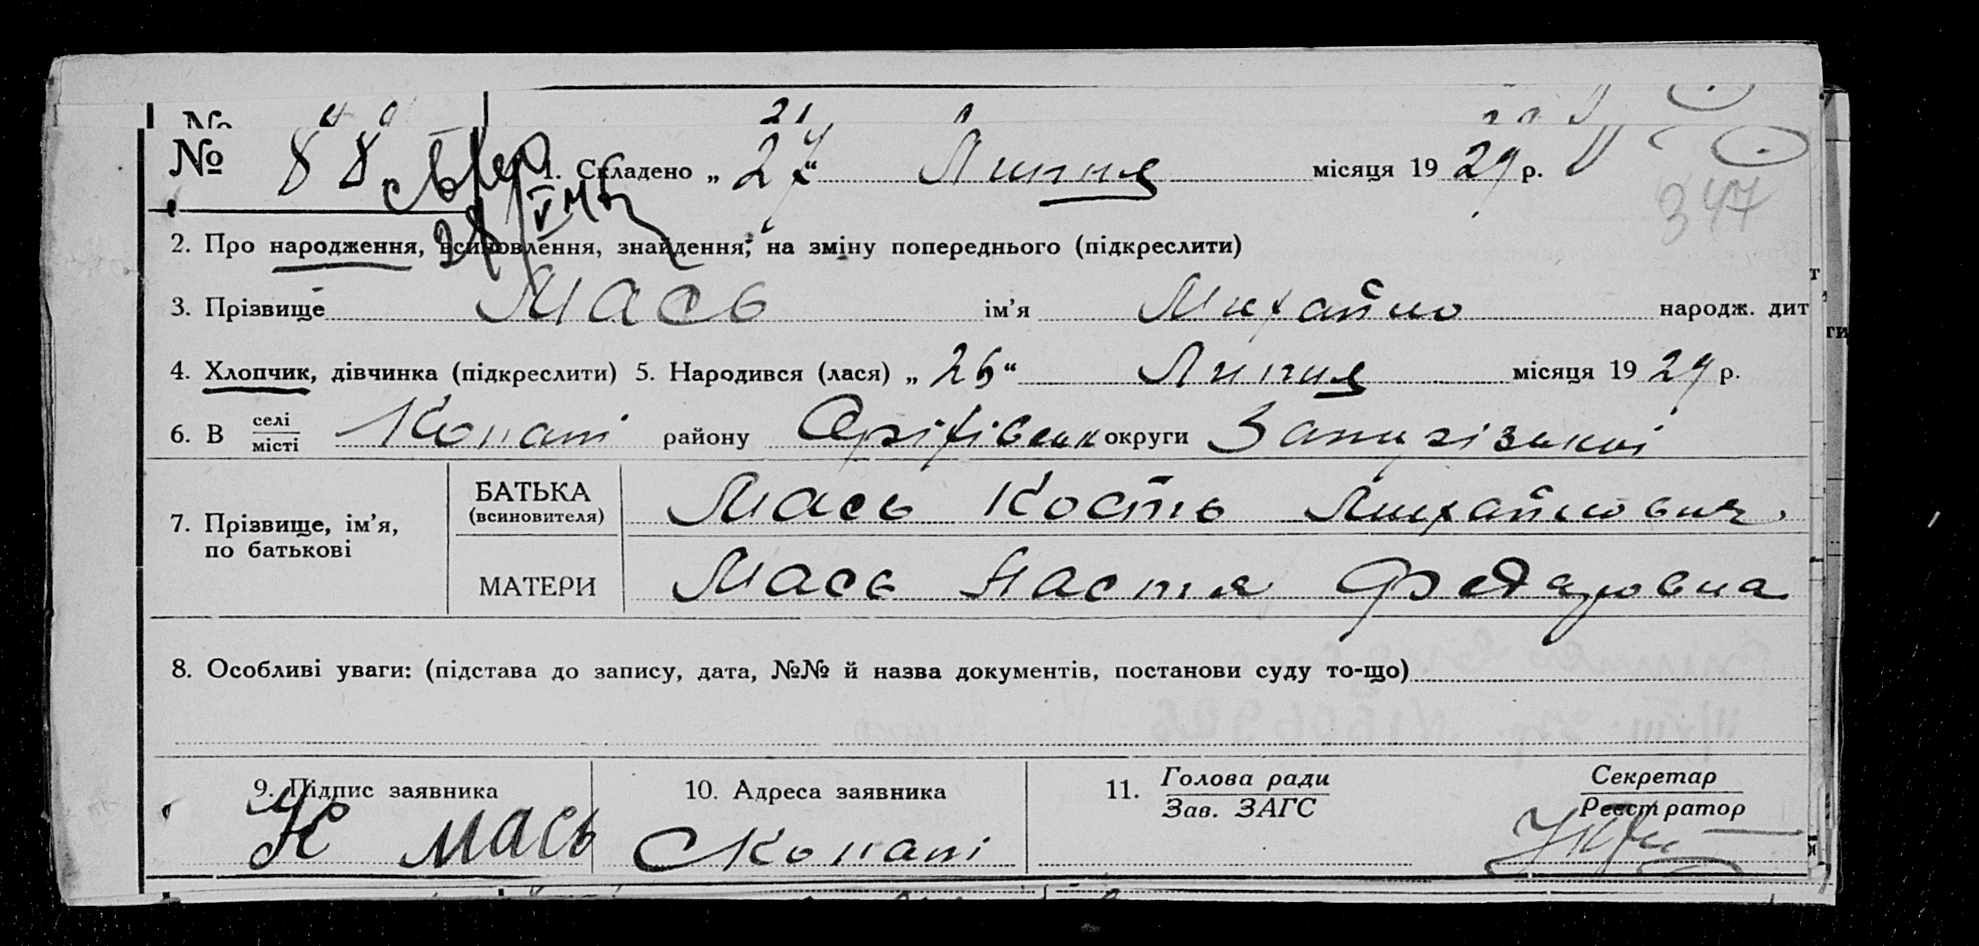 № 88 1. Складено „27“ Липня місяця 1929 р.
347
2. Про народження, всиновлення, знайдення, на зміну попереднього (підкреслити)
3. Прізвище Мась ім’я Михайло народж. дит
4. Хлопчик, дівчинка (підкреслити) 5. Народився (лася) „26“ Липня місяця 1929 р.
6. В селі/місті Копані району Оріхівськ округи Запорізької
7. Прізвище, ім’я, по батькові
БАТЬКА (всиновителя) Мась Кость Михайлович
МАТЕРИ Мась Настя Федоровна
8. Особливі уваги: (підстава до запису, дата, №№ й назва документів, постанови суду то-що)
9. Підпис заявника 10. Адреса заявника 11. Голова ради Секретар
Зав. ЗАГС Реєстратор
К Мась с Копані